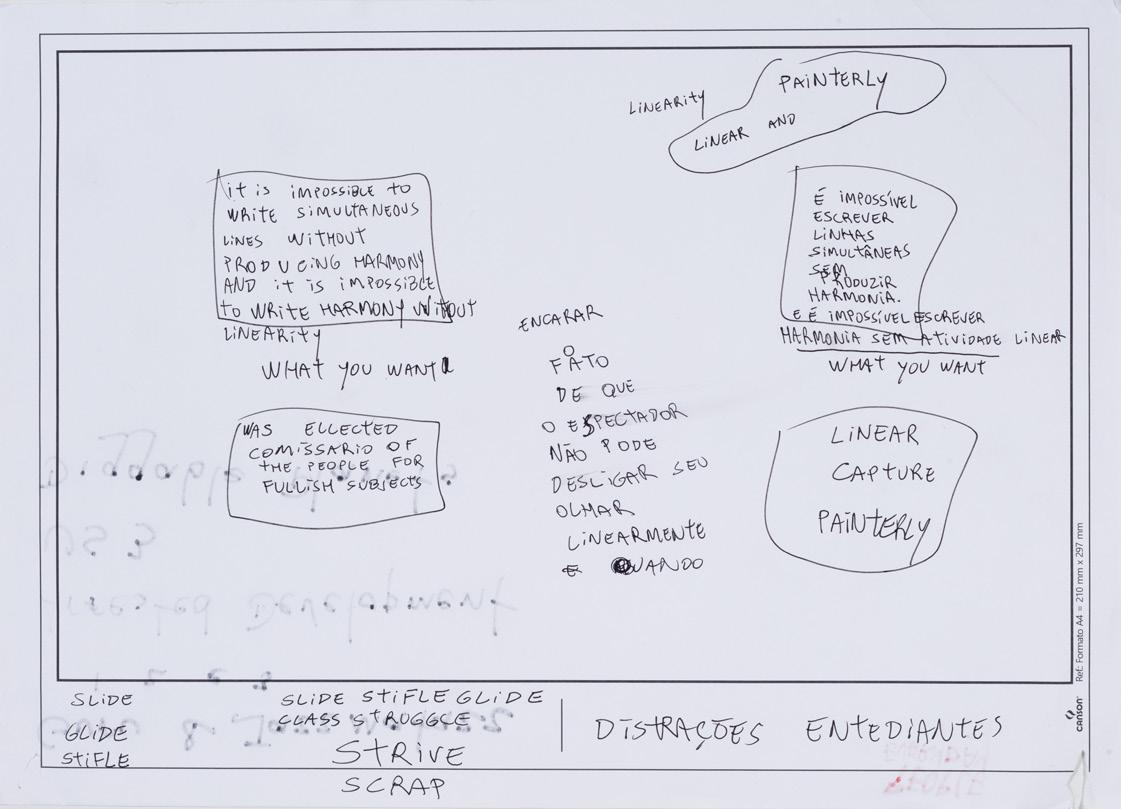 LINEARITY
PAINTERLY
LINEAR AND
IT IS IMPOSSIBLE TO
WRITE SIMULTANEOUS
LINES WITHOUT
PRODUCING HARMONY
AND IT IS IMPOSSIBLE
TO WRITE HARMONY WITOUT
LINEARITY
WHAT YOU WANT
WAS ELLECTED
COMISSARIO OF
THE PEOPLE FOR
FULLISH SUBJECTS
ENCARAR
O
FATO
DE QUE
O ESPECTADOR
NÃO PODE
DESLIGAR SEU
OLHAR
LINEARMENTE
E QUANDO
É IMPOSSÍVEL
ESCREVER
LINHAS
SIMULTÂNEAS
SEM
PRODUZIR
HARMONIA.
E É IMPOSSÍVEL ESCREVER
HARMONIA SEM ATIVIDADE LINEAR
WHAT YOU WANT
LINEAR
CAPTURE
PAINTERLY
SLIDE
GLIDE
STIFLE
SLIDE STIFLE GLIDE
CLASS STRUGGLE
STRIVE
SCRAP
DISTRAÇÕES ENTEDIANTES
canson Ref.: Formato A4 = 210 mm x 297 mm